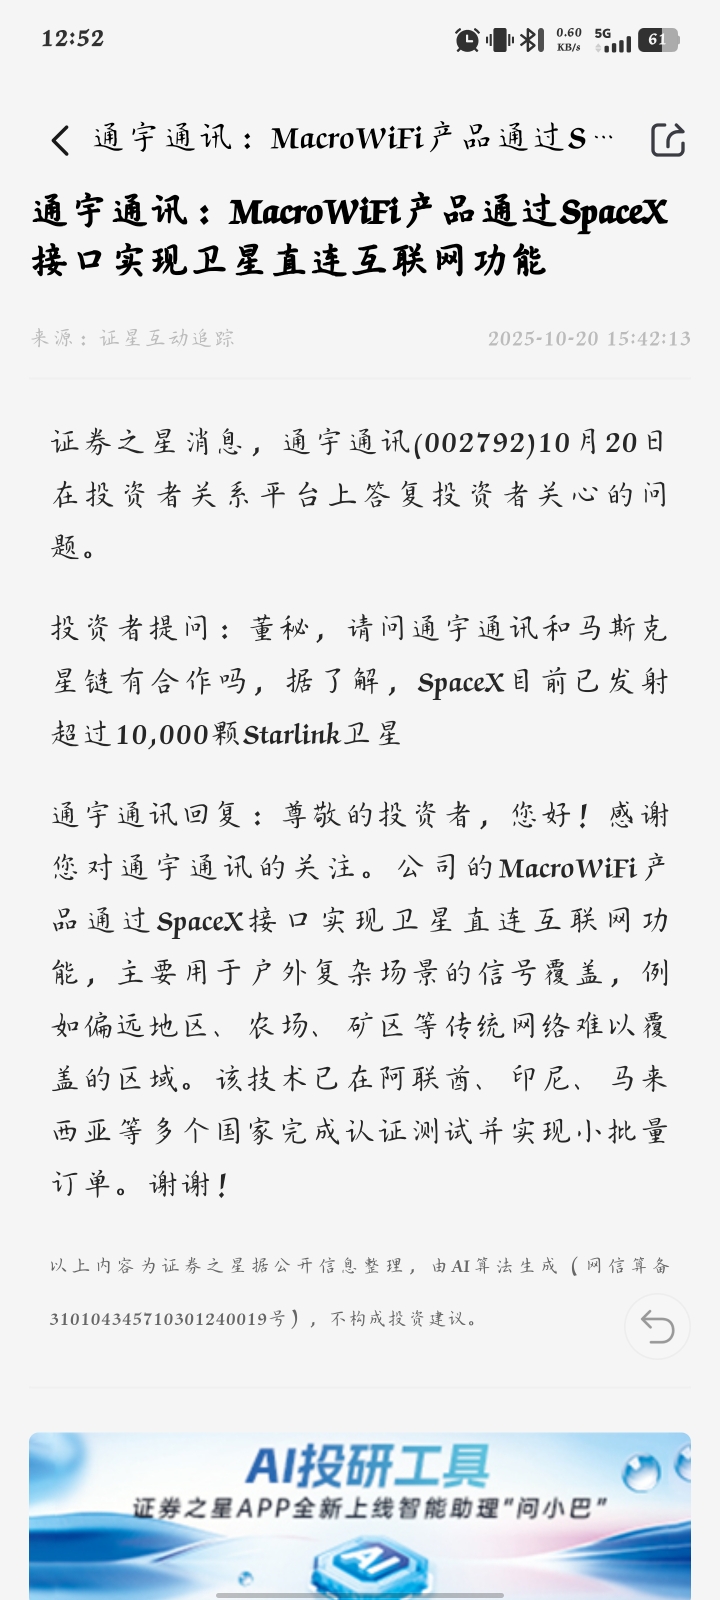 12:52
0.60
KB/s
5G
61
通宇通讯：MacroWiFi产品通过S…
通宇通讯：MacroWiFi产品通过SpaceX
接口实现卫星直连互联网功能
来源：证星互动追踪
2025-10-20 15:42:13
证券之星消息，通宇通讯(002792)10月20日
在投资者关系平台上答复投资者关心的问
题。
投资者提问：董秘，请问通宇通讯和马斯克
星链有合作吗，据了解，SpaceX目前已发射
超过10,000颗Starlink卫星
通宇通讯回复：尊敬的投资者，您好！感谢
您对通宇通讯的关注。公司的MacroWiFi产
品通过SpaceX接口实现卫星直连互联网功
能，主要用于户外复杂场景的信号覆盖，例
如偏远地区、农场、矿区等传统网络难以覆
盖的区域。该技术已在阿联酋、印尼、马来
西亚等多个国家完成认证测试并实现小批量
订单。谢谢！
以上内容为证券之星据公开信息整理，由AI算法生成（网信算备
310104345710301240019号），不构成投资建议。
AI投研工具
证券之星APP全新上线智能助理"问小巴"
AI